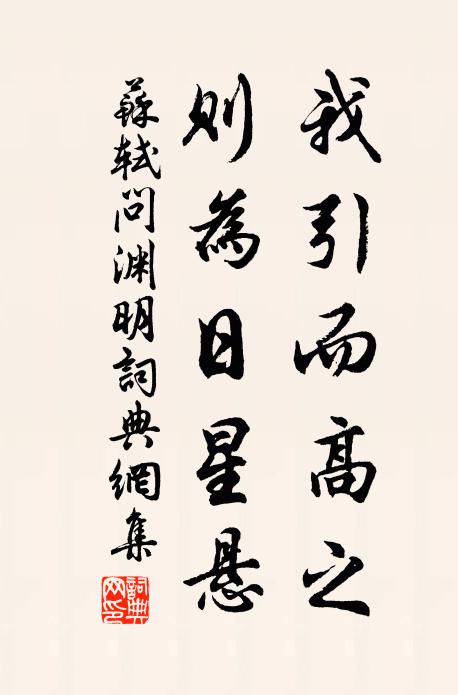 我引而高之
則為日星悬
蘇軾問淵明詞典網集
詞典
网印